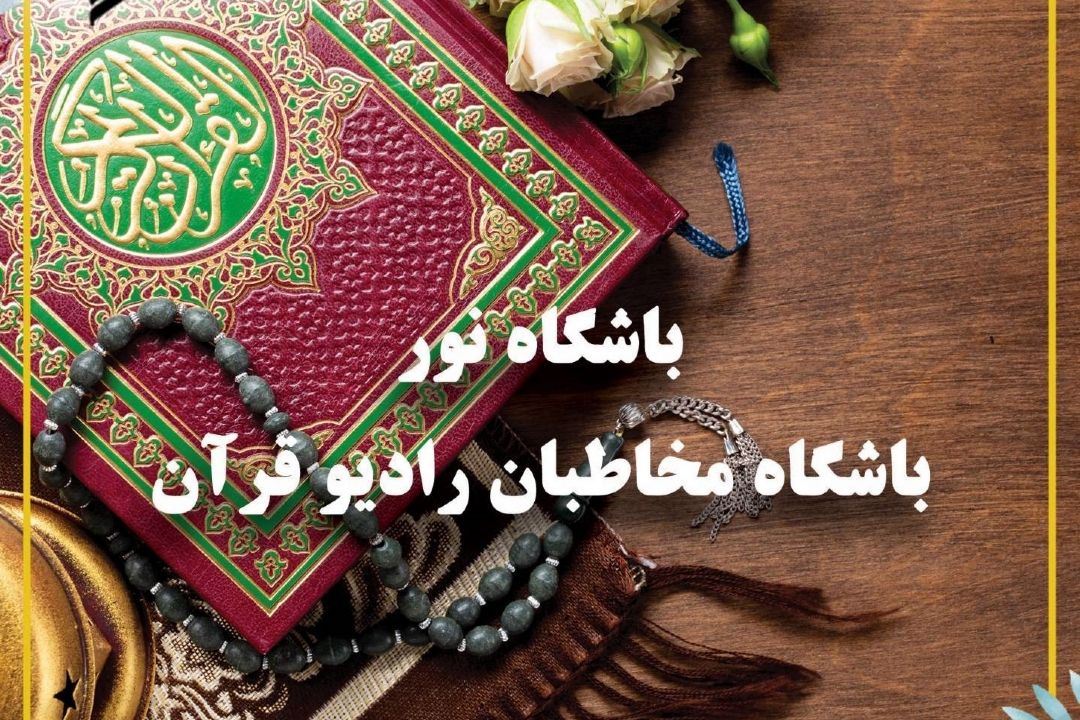 القرآن الكريم
باشگاه نور
باشگاه مخاطبان رادیو قرآن